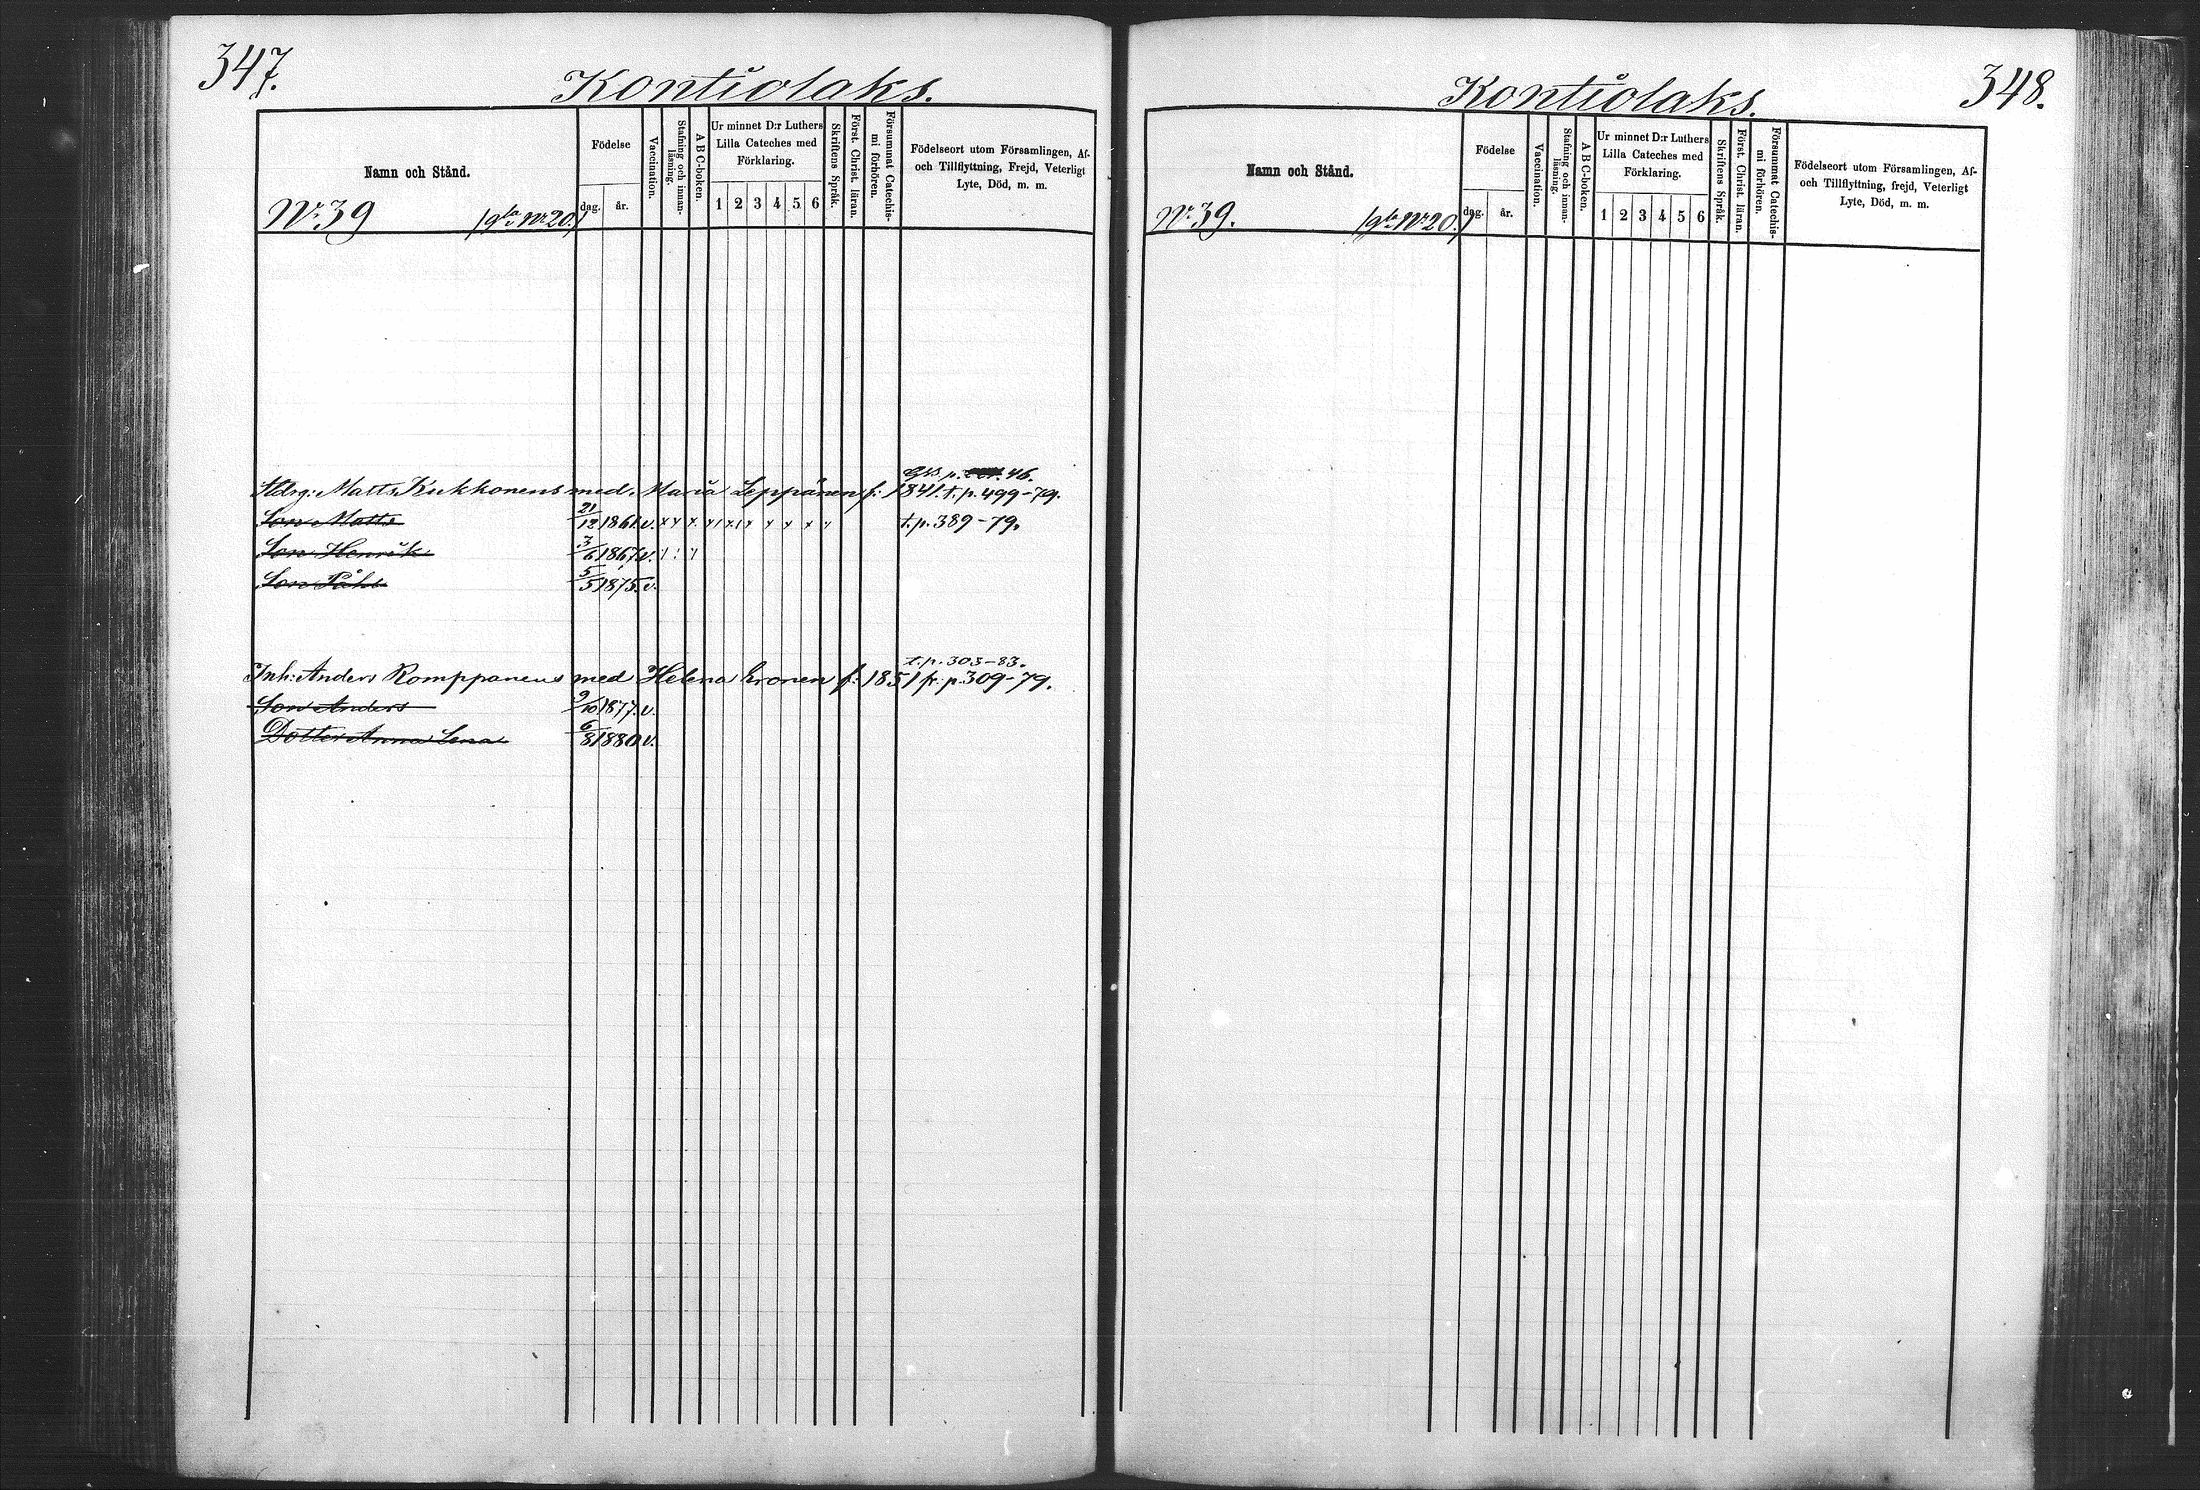 347.
Kontiolaks.
Namn och Stånd.
Födelse
dag.
år.
Vaccination.
Stafning och innanläsning.
A B C-boken.
Ur minnet D:r Luthers
Lilla Cateches med
Förklaring.
1 2 3 4 5 6
Skriftens Språk.
Först. Christ. läran.
Försummat Catechismi förhören.
Födelseort utom Församlingen, Af-
och Tillflyttning, Frejd, Veterligt
Lyte, Död, m. m.
Nr. 39 (gla Nr 20.)
p. 46.
Matts Kukkonens med Maria Leppänen f: 1841. t. p. 499-79.
Son Matts 21/12 1861. v. x x x x x x x x x x t. p. 389-79.
Son Henrik 3/6 1867. v.
Son Påhl 5/5 1875. v.
t. p. 303-83.
Inh: Anders Romppanens med Helena Ironen f: 1851 fr: p. 309-79.
Son Anders 9/10 1877. v.
Dotter Anna Lena 6/8 1880 v.
348.
Kontiolaks.
Namn och Stånd.
Födelse
dag.
år.
Vaccination.
Stafning och innanläsning.
A B C-boken.
Ur minnet D:r Luthers
Lilla Cateches med
Förklaring.
1 2 3 4 5 6
Skriftens Språk.
Först. Christ. läran.
Försummat Catechismi förhören.
Födelseort utom Församlingen, Af-
och Tillflyttning, frejd, Veterligt
Lyte, Död, m. m.
Nr. 39. (gla Nr 20.)